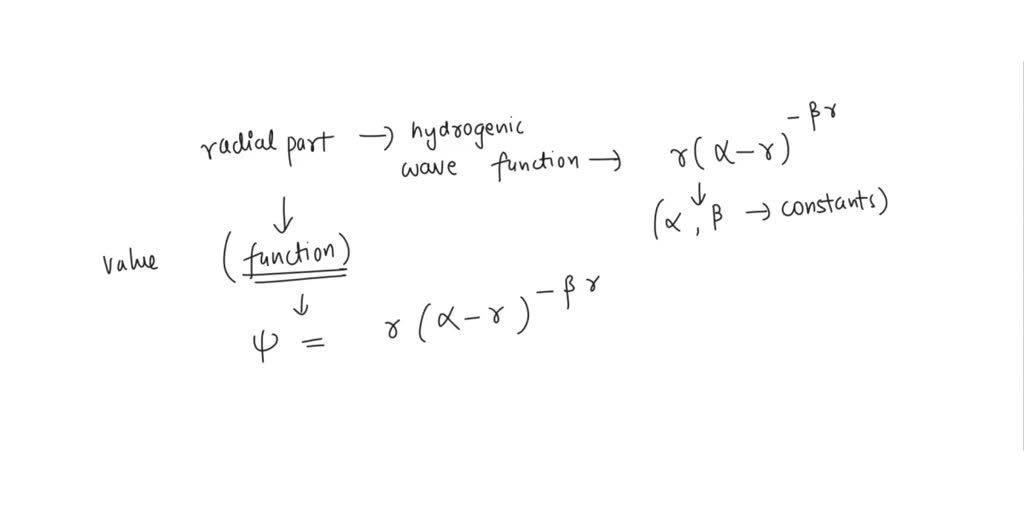 radial part → hydrogenic wave function → r(α-r)^{-βr}
↓ (α, β → constants)
value (function)
↓
ψ = r(α-r)^{-βr}